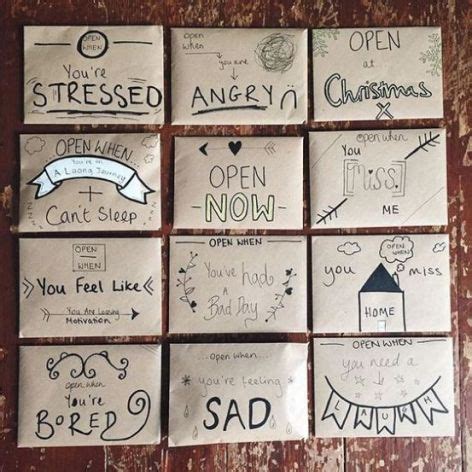 OPEN
WHEN
You're
STRESSED
open
when
you are
ANGRY
OPEN
at
Christmas
X
OPEN WHEN...
You're on
A Loong Journey
+
Can't Sleep
OPEN
NOW
open when
You
Miss
ME
OPEN
WHEN
You Feel Like
You Are Loosing
Motivation
OPEN WHEN
You've had
A
Bad Day
OPEN
WHEN
you miss
HOME
open when
You're
BORED
...open when...
you're feeling
SAD
OPEN WHEN
you need
a
LAUGH